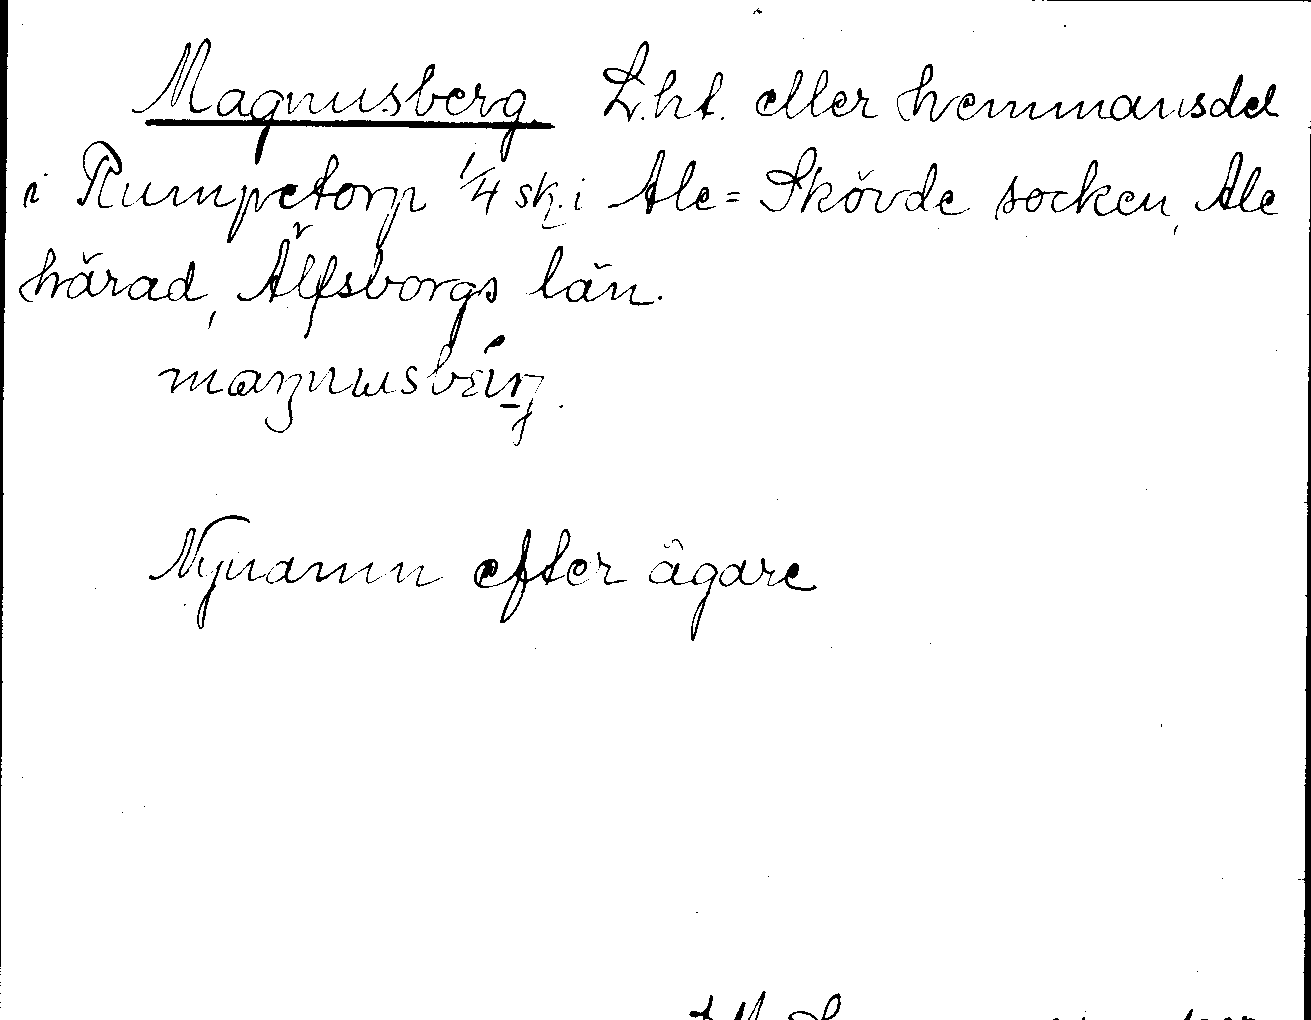 Magnusberg. L.ht. eller hemmansdel
i Rumpetorp 1/4 sk. i Ale=Skövde socken, Ale
härad, Älfsborgs län.
Nynamn efter ägare